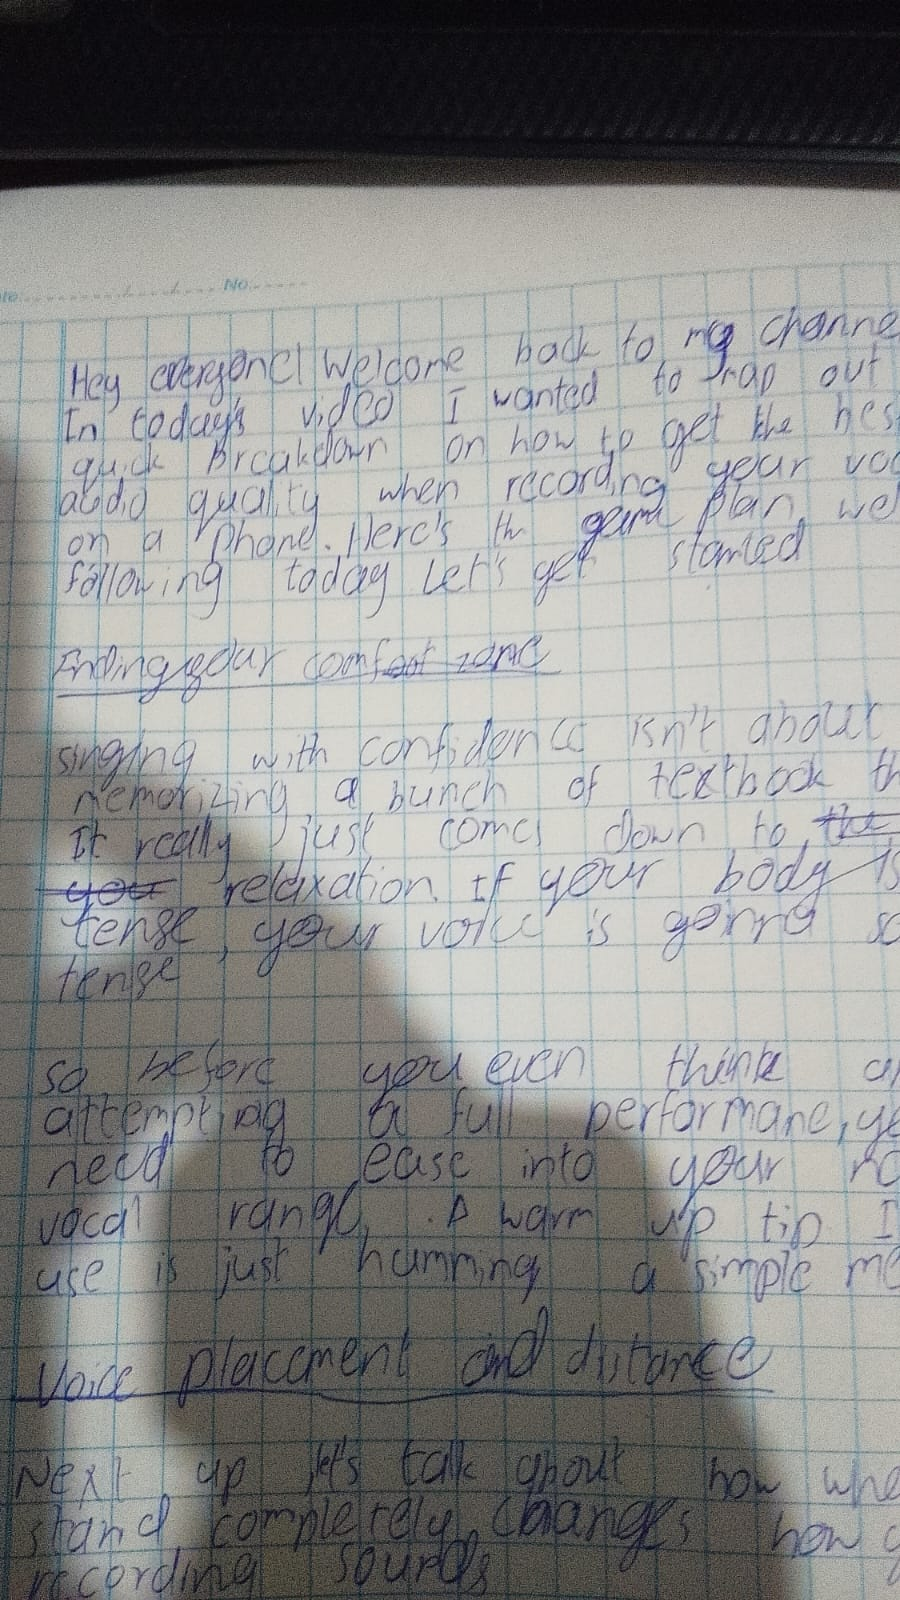 No
Hey everyone! Welcome back to my channe
In today's video I wanted to rap out
quick Breakdown on how to get the bes
audio quality when recording your voc
on a phone. Here's th game plan we
following today Let's get started
Finding your comfort zone
singing with confidence isn't about
memorizing a bunch of textbook th
It really just comes down to the
you relaxation. If your body is
tense, your voice is going so
tense
so before you even think
attempting a full performane, yo
need to ease into your
vocal range. A warm up tip I
use is just humming a simple me
Voice placement and distance
Next up let's talk about how whe
stand completely changes how y
recording sounds